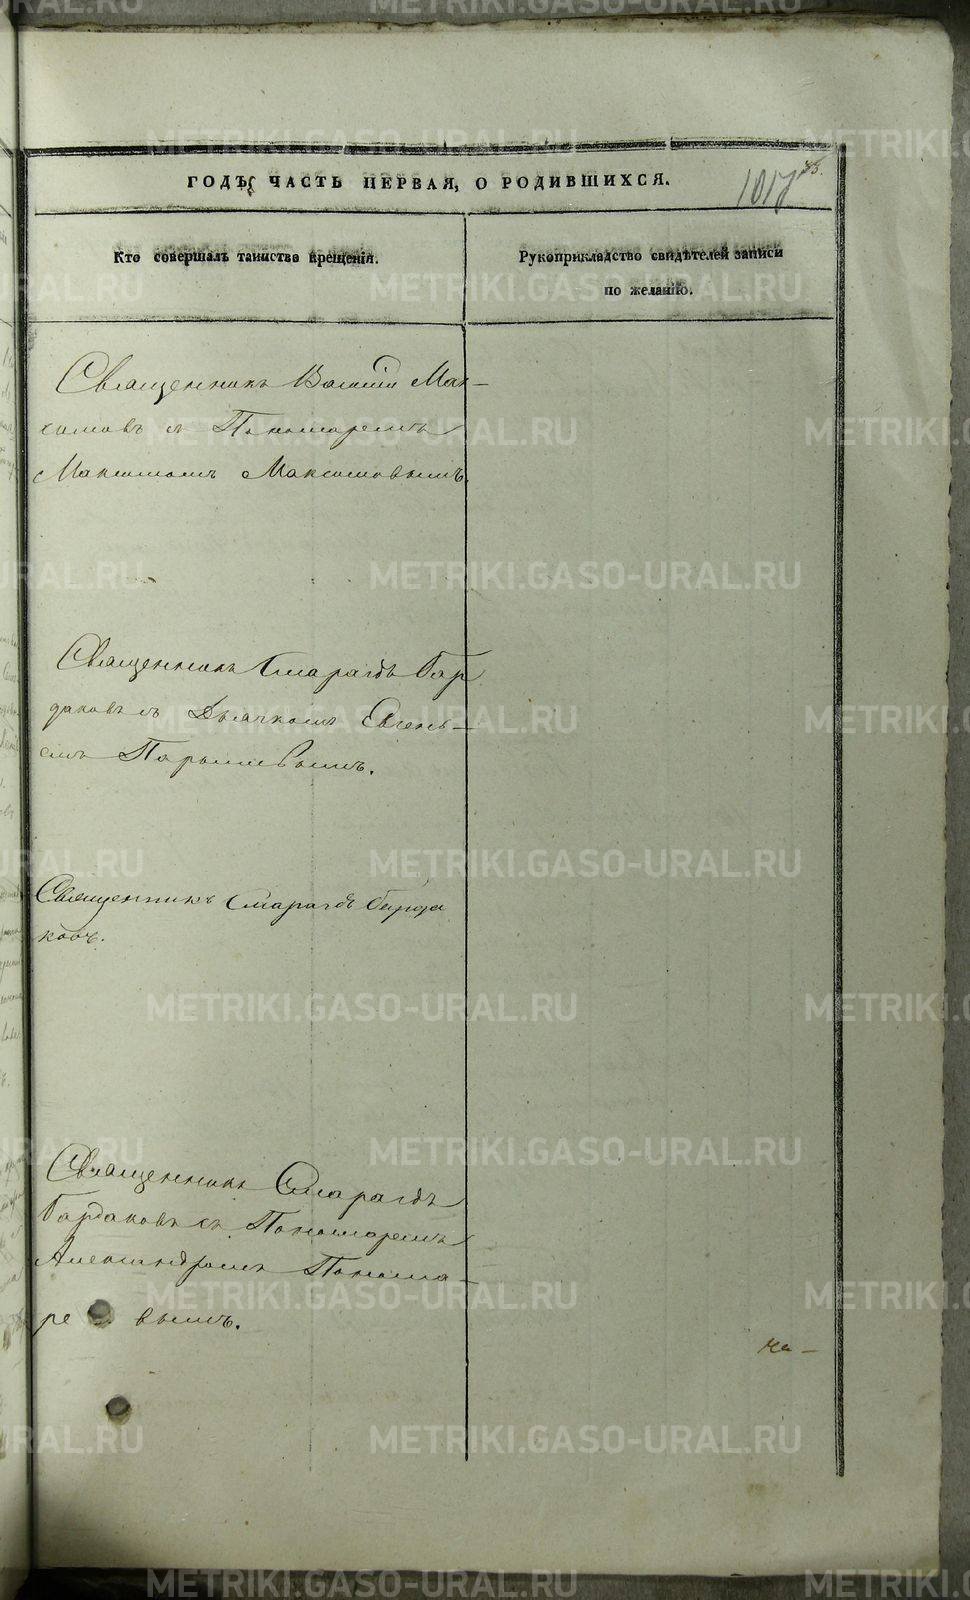 ГОДѢ, ЧАСТЬ ПЕРВАЯ, О РОДИВШИХСЯ.
1017
Кто совершалъ таинство крещенія.
Рукоприкладство свидѣтелей записи
по желанію.
Священникъ Василій Мак-
симовъ съ Пономаремъ
Максимомъ Максимовымъ.
Священникъ Смарагдъ Бар
даковъ съ Дьячкомъ Евгень-
емъ
Священникъ Смарагдъ Барда
ковъ.
Священникъ Смарагдъ
Бардаковъ съ Пономаремъ
Александромъ Понома-
ре вымъ.
На-
METRIKI.GASO-URAL.RU